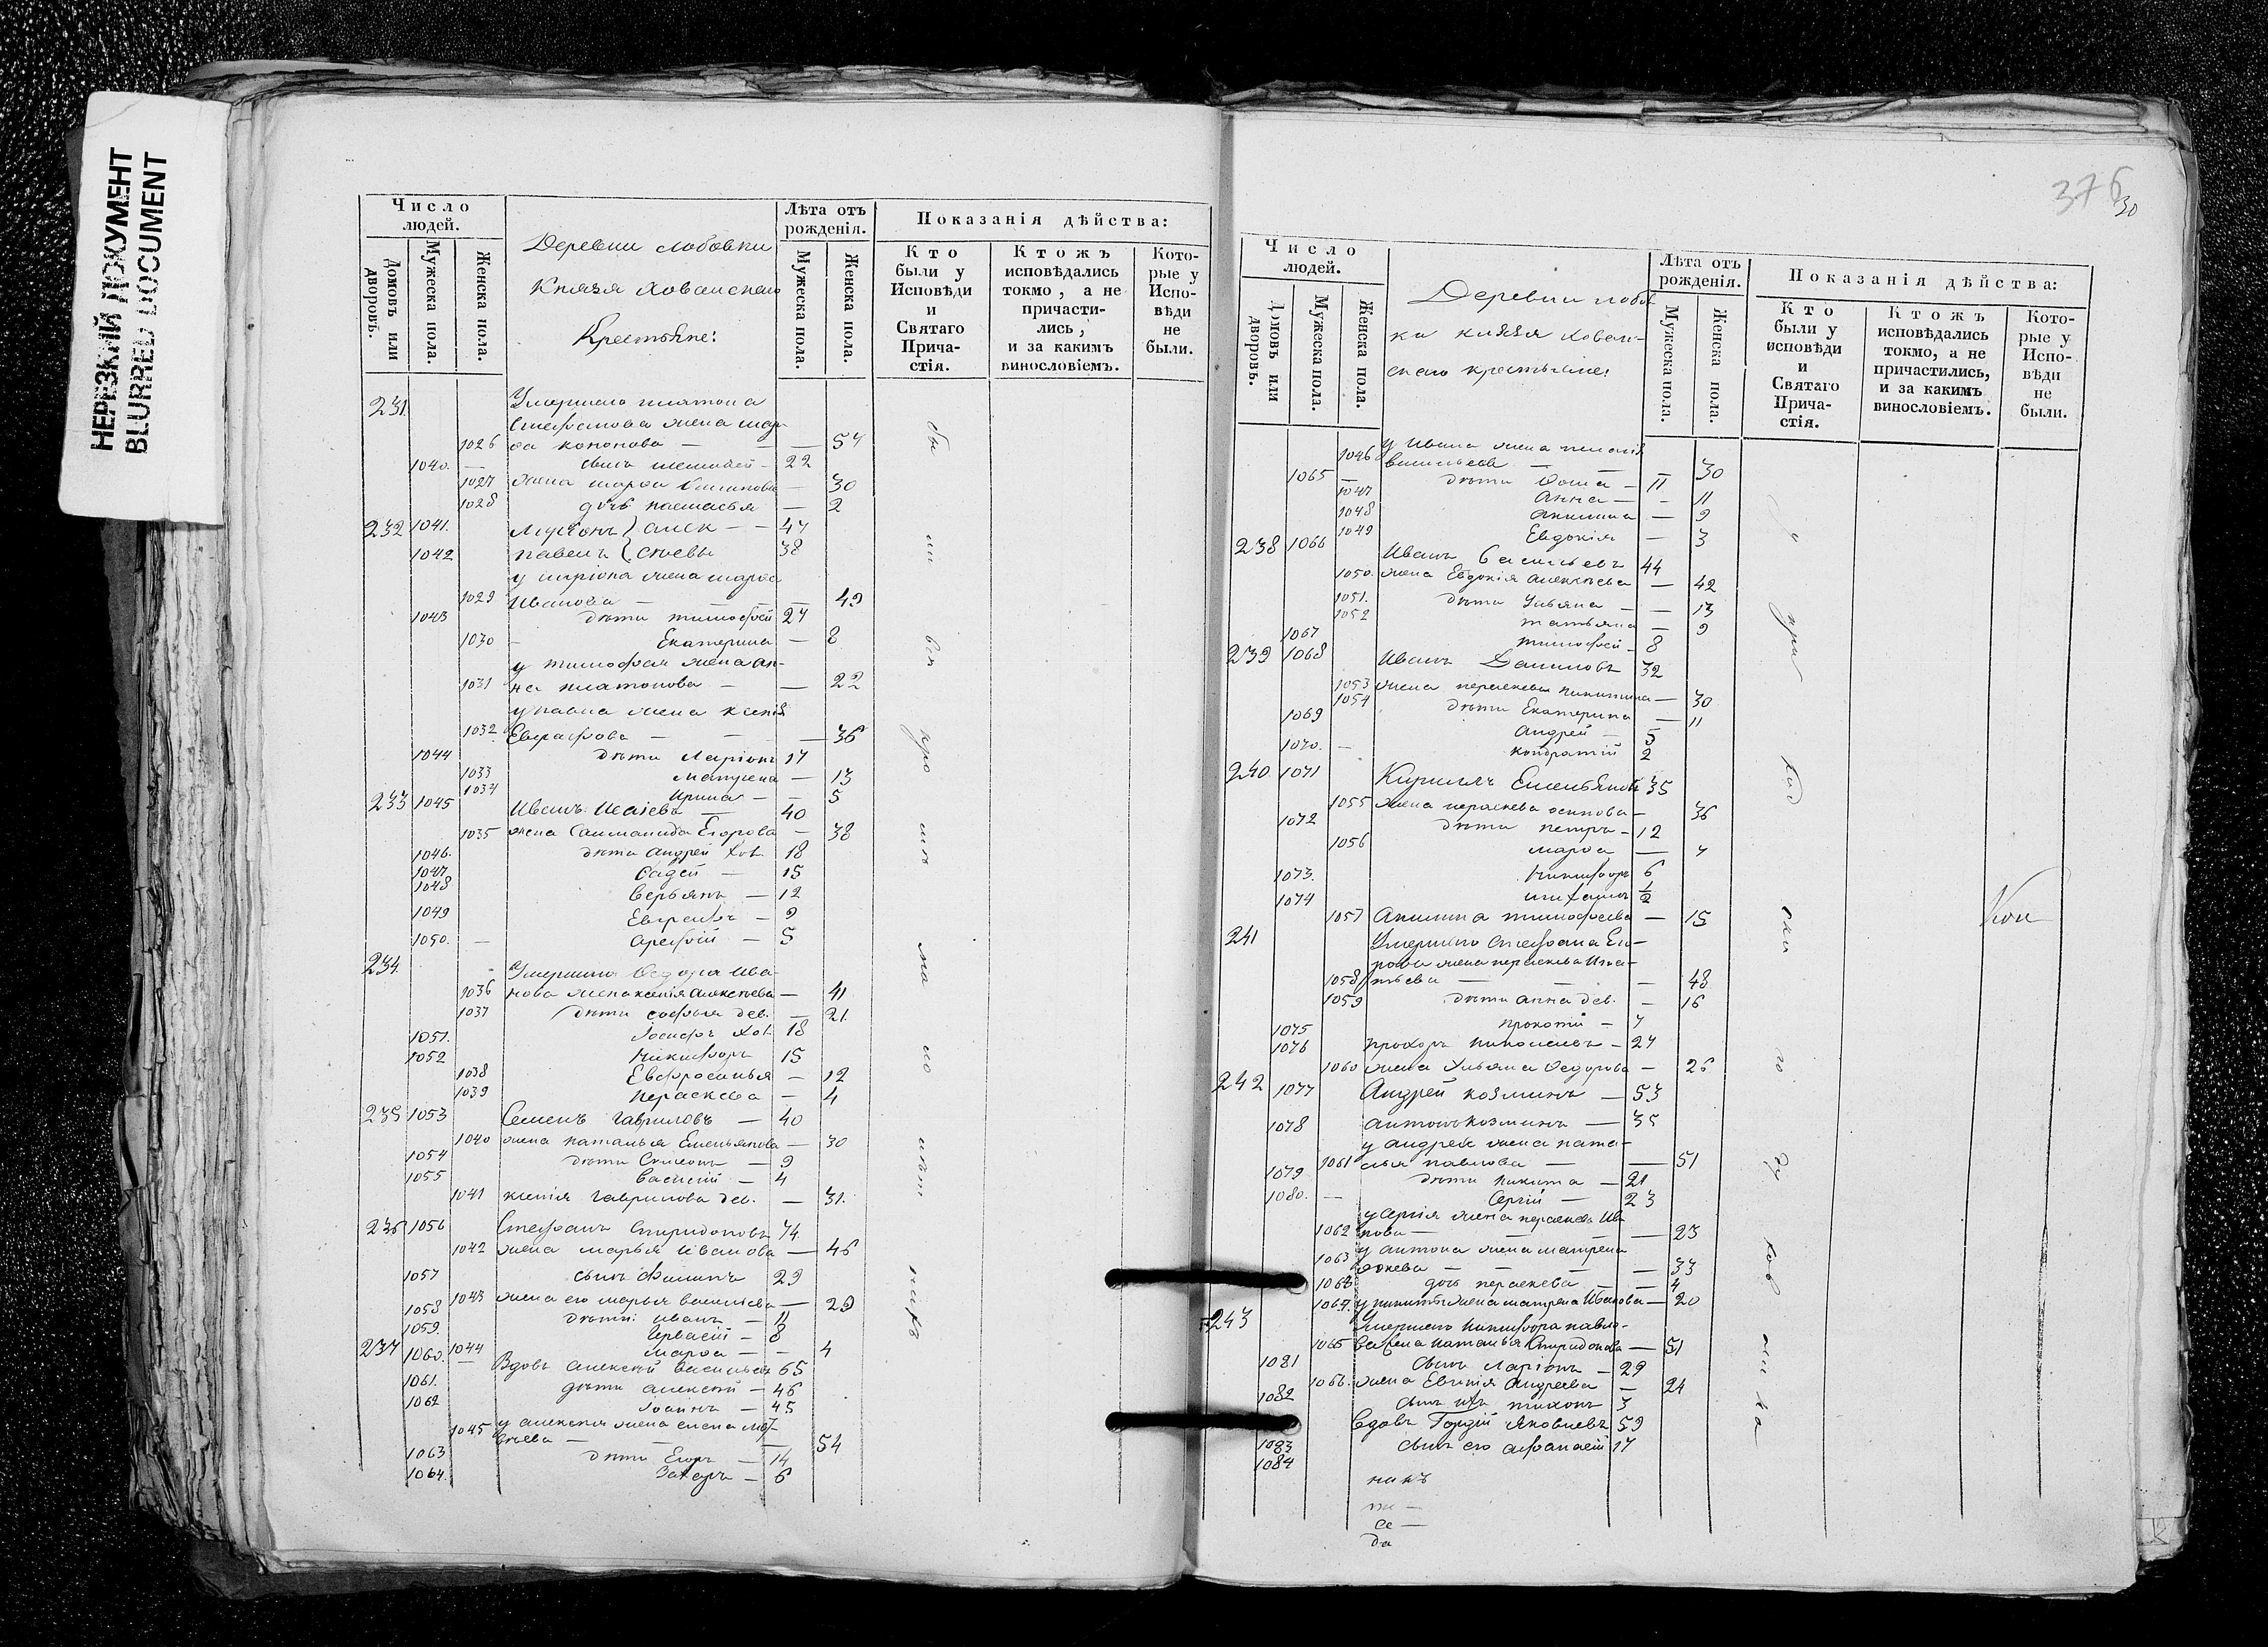 НЕРЕЗКИЙ ДОКУМЕНТ
BLURRED DOCUMENT
Число людей.
Домовъ или дворовъ.
Мужеска пола.
Женска пола.
Деревни Лобовки
Князя Хованскаго
Крестьяне:
Лѣта отъ рожденія.
Мужеска пола.
Женска пола.
Показанія дѣйства:
Кто были у Исповѣди и Святаго Причастія.
Ктожъ исповѣдались токмо, а не причастились, и за какимъ винословіемъ.
Которые у Исповѣди не были.
231. Умершаго Платона
Стефанова жена Мар-
1026 фа Кононова — — 54
1040. — сынъ 22
1027 жена Марфа — 30
1028 дочь Настасья — 2
232 1041. Алек — — 47
1042 Павелъ сѣевы 38
у Ларіона жена Марфа
1029 Иванова — — — 49
1043 дѣти Тимофей 24
1030 — Екатерина — 8
у Тимофея жена Ан-
1031 на Платонова — — 22
у Павла жена Ксенія
1032 Евграфова — — — 36
1044 дѣти Ларіонъ 17
1033 Матрена — 13
1034 Ирина — — 5
233 1045 Иванъ Исаіевъ — 40
1035 жена Саломанида Егорова — 38
1046. дѣти Андрей хол. 18
1047 Фадей — 15
1048 Северьянъ — 12
1049 Евграфъ — 9
1050. — Арефій — 5
234. Умершаго Федора Ива-
1036 нова жена Ксенія Алексѣева — 41
1037 дѣти Софья дев. — 21.
1051. Іосифъ хол. 18
1052 Никифоръ 15
1038 Евфросинья — 12
1039 Параскева — 4
235 1053 Семенъ Гавриловъ — 40
1040 жена Наталья Емельянова — 30
1054 дѣти Симеонъ — 9
1055 Василій — 4
1041 Ксенія Гаврилова дев. — 31.
236 1056 Стефанъ Спиридоновъ 74.
1042 жена Марья Иванова — 46
1057 сынъ Филипъ 29
1043 жена его Марья Васильева — 29
1058 дѣти: Иванъ — 11
1059. Гервасій — 8
1044 Марфа — — 4
237 1060. — Вдовъ Алексѣй Васильевъ 65
1061. дѣти Алексѣй — 46
1062 Іоаннъ — 45
1045 у Алексѣя жена Елена Мат-
вѣева — — — 54
1063 дѣти Егоръ — 14
1064. Захаръ — 6
бы
ли
вся
про
шла
го
лѣт
нихъ
376
30
Число людей.
Домовъ или дворовъ.
Мужеска пола.
Женска пола.
Деревни Лобов
ки князя Хован-
скаго крестьяне:
Лѣта отъ рожденія.
Мужеска пола.
Женска пола.
Показанія дѣйства:
Кто были у исповѣди и Святаго Причастія.
Ктожъ исповѣдались токмо, а не причастились, и за какимъ винословіемъ.
Которые у Исповѣди не были.
1046 у Ивана жена Пелагія
Васильева — — 30
1065 — дѣти Фома — 11
1047 Анна — — 11
1048 Акилина — 9
1049 Евдокія — 3
238 1066 Иванъ Васильевъ 44
1050. жена Евдокія Алексѣева — 42
1051. дѣти Ульяна — — 13
1052 Татьяна — 9
1067 Тимофей — 8
239 1068 Иванъ Даниловъ 32
1053 жена Параскева Никитина — 30
1054 дѣти Екатерина — 11
1069 Андрей — 5
1070. — Кондратій 2
240 1071 Кирилъ Емельяновъ 35
1055 жена Параскева Осипова — 36
1072 дѣти Петръ — 12
1056 Марфа — 7
1073. Никифоръ 6
1074 Михаилъ 1/2
1057 Акилина Тимофеева — 15
241 Умершаго Стефана Его-
рова жена Параскева Игна-
1058 тьева — — — 48
1059 дѣти Анна дев. — 16
1075 Прокопій — 7
1076 Прохоръ Николаевъ — 27
1060 жена Ульяна Федорова — 26
242 1077 Андрей Козминъ — 53
1078 Антонъ Козминъ — 35
у Андрея жена Ната-
1061 лья Павлова — — 51
1079 дѣти Никита — 21
1080. — Сергій — 23
у Сергія жена Параскева Ива
1062 нова — — — — 23
1063 у Антона жена Матрена
Фокева — — — — 33
1063 дочь Параскева — — 4
1064. у Никиты жена Матрена Иванова — 20
243 Умершаго Никифора Павло-
1065 ва жена Наталья Спиридонова — 51
1081 сынъ Ларіонъ — 29
1066. жена Евгенія Андреева — 24
1082 сынъ ихъ Тихонъ 3
1083 Вдовъ Гордій Яковлевъ 59
1084 сынъ его Афанасій 17
накъ
се —
да
у
при
ход
ска
го
ду
хов
ни
ка